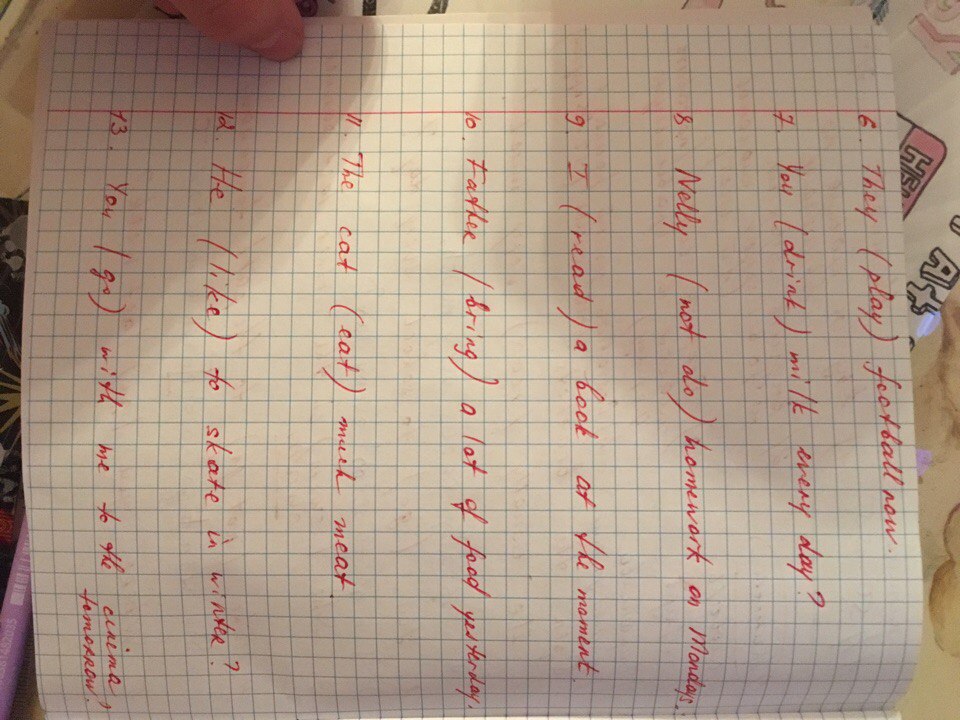 6. They (play) football now.
7. You (drink) milk every day?
8 Nelly (not do) homework on Mondays.
9. I (read) a book at the moment.
10. Father (bring) a lot of food yesterday.
11. The cat (eat) much meat
12 He (like) to skate in winter?
13. You (go) with me to the cinema
tomorrow?